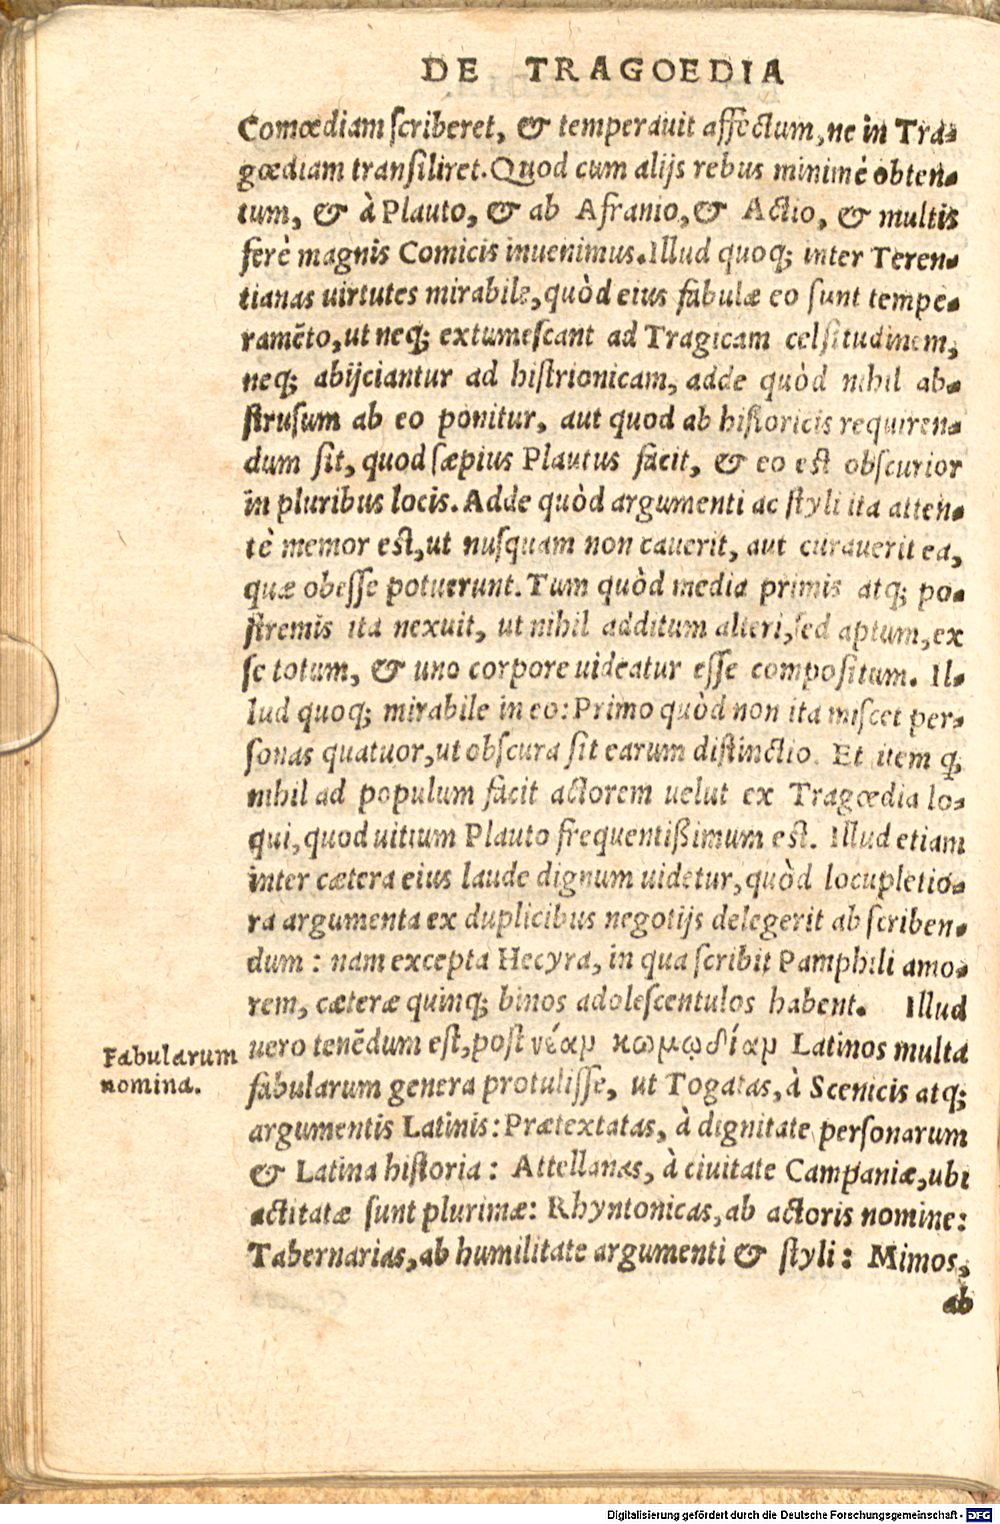 DE TRAGOEDIA
Comœdiam scriberet, & temperauit affectum, ne in Tra-
gœdiam transiliret. Quod cum alijs rebus minimè obten-
tum, & à Plauto, & ab Afranio, & Actio, & multis
ferè magnis Comicis inuenimus. Illud quoq; inter Teren-
tianas uirtutes mirabile, quòd eius fabulæ eo sunt tempe-
ramẽto, ut neq; extumescant ad Tragicam celsitudinem,
neq; abijciantur ad histrionicam, adde quòd nihil ab-
strusum ab eo ponitur, aut quod ab historicis requiren-
dum sit, quod sæpius Plautus facit, & eo est obscurior
in pluribus locis. Adde quòd argumenti ac styli ita atten-
tè memor est, ut nusquam non cauerit, aut curauerit ea,
quæ obesse potuerunt. Tum quòd media primis atq; po-
stremis ita nexuit, ut nihil additum alteri, sed aptum, ex
se totum, & uno corpore uideatur esse compositum. Il-
lud quoq; mirabile in eo: Primo quòd non ita miscet per-
sonas quatuor, ut obscura sit earum distinctio. Et item ꝙ
nihil ad populum facit actorem uelut ex Tragœdia lo-
qui, quod uitium Plauto frequentißimum est. Illud etiam
inter cætera eius laude dignum uidetur, quòd locupletio-
ra argumenta ex duplicibus negotijs delegerit ab scriben-
dum: nam excepta Hecyra, in qua scribit Pamphili amo-
rem, cæteræ quinq; binos adolescentulos habent. Illud
Fabularum
nomina.
uero tenẽdum est, post νέαμ κωμῳδίαμ Latinos multa
fabularum genera protulisse, ut Togatas, à Scenicis atq;
argumentis Latinis: Prætextatas, à dignitate personarum
& Latina historia: Attellanas, à ciuitate Campaniæ, ubi
actitatæ sunt plurimæ: Rhyntonicas, ab actoris nomine:
Tabernarias, ab humilitate argumenti & styli: Mimos,
ab
Digitalisierung gefördert durch die Deutsche Forschungsgemeinschaft - DFG